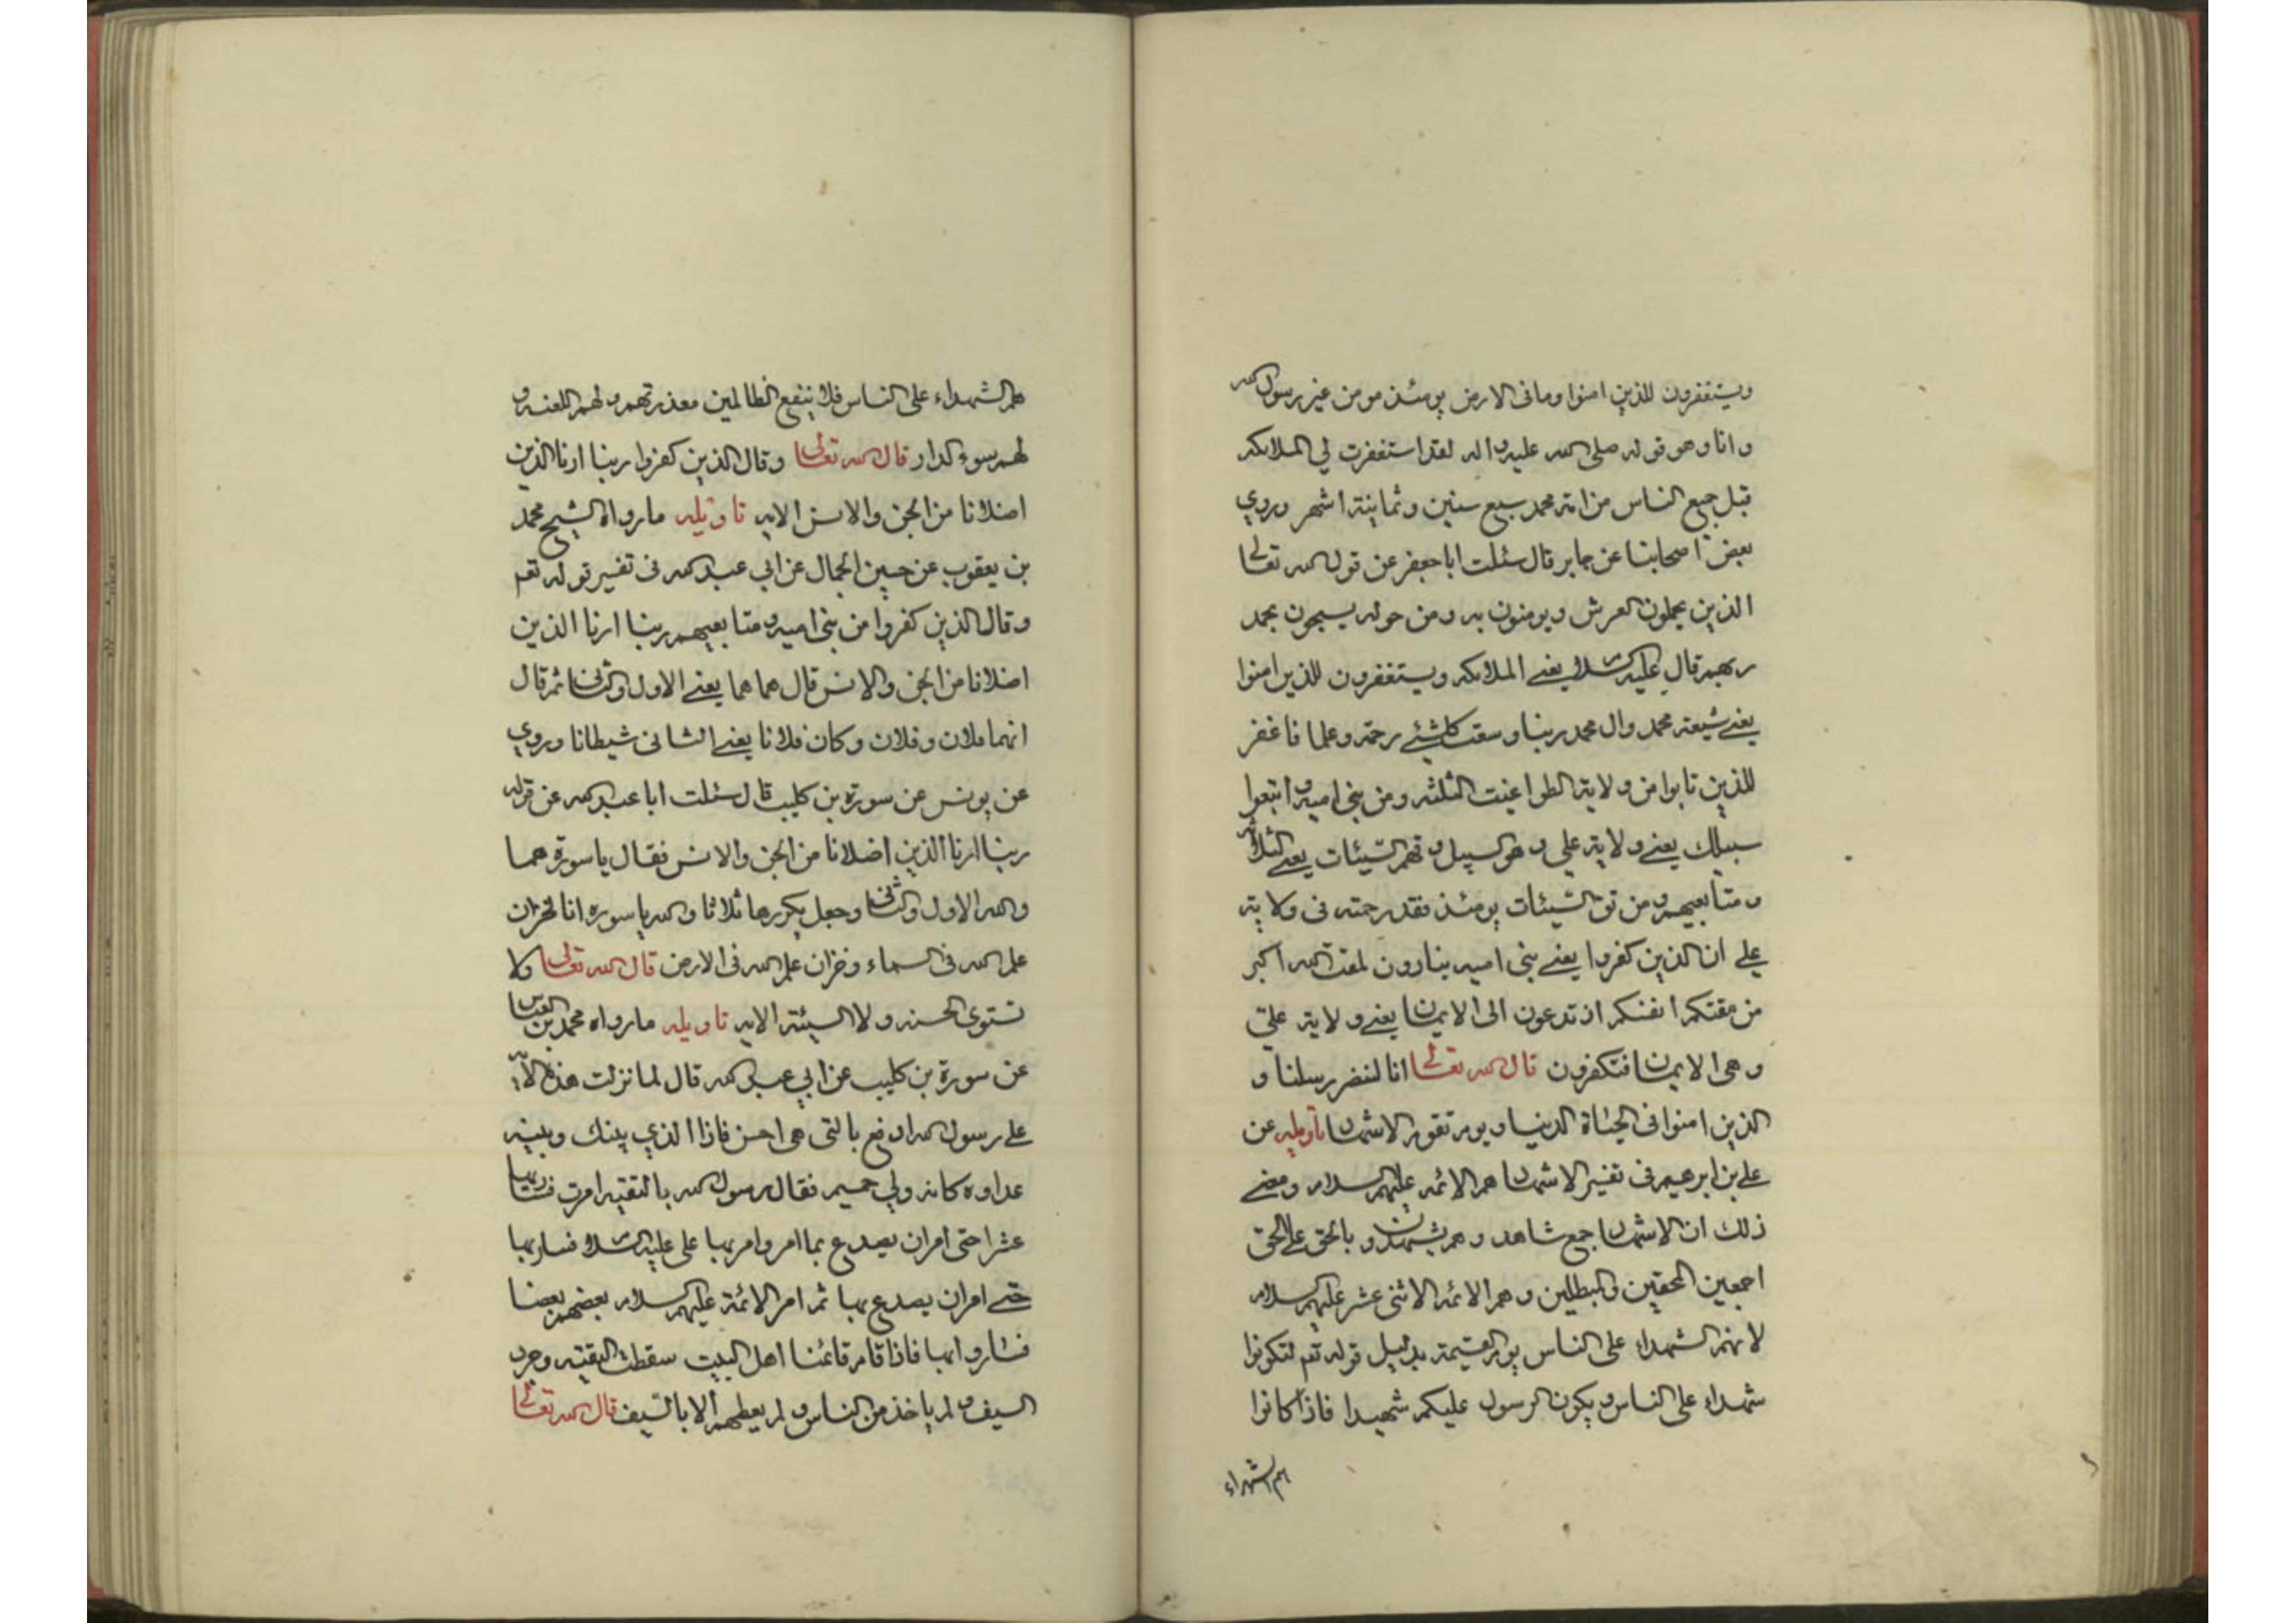 ويستغفرون للذين امنوا وما في الارض يومئذ مومن غير رسول الله
وانا وهو قوله صلى الله عليه واله لقد استغفرت لي الملائكه
قبل جميع الناس من امة محمد سبع سنين وثمانية اشهر وروي
بعض اصحابنا عن جابر قال سئلت ابا جعفر عن قول الله تعالى
الذين يحملون العرش ويومنون به ومن حوله يسبحون بحمد
ربهم قال عليه السلام يعني الملائكه ويستغفرون للذين امنوا
يعني شيعة محمد وال محمد ربنا وسعت كلشئ رحمة وعلما فاغفر
للذين تابوا من ولاية الطواغيت الثلثه ومن بني اميه واتبعوا
سبيلك يعني ولاية علي وهو السبيل وقهم السيئات يعني الثلاثه
ومتابعيهم ومن تق السيئات يومئذ فقد رحمته في ولاية
علي ان الذين كفروا يعني بني اميه ينادون لمقت الله اكبر
من مقتكم انفسكم اذ تدعون الى الايمان يعني ولاية علي
وهي الايمان فتكفرون قال الله تعالى انا لننصر رسلنا و
الذين امنوا في الحياة الدنيا ويوم تقوم الاشهاد تاويله عن
علي بن ابرهيم في تفسير الاشهاد هم الائمه عليهم السلام ومعنى
ذلك ان الاشهاد جمع شاهد وهم يشهدون بالحق على الخلق
اجمعين المحقين والمبطلين وهم الائمه الاثنى عشر عليهم السلام
لانهم الشهداء على الناس يوم القيمة بدليل قوله تعم لتكونوا
شهداء على الناس ويكون الرسول عليكم شهيدا فاذا كانوا
هم الشهداء
هم الشهداء على الناس فلا ينفع الظالمين معذرتهم ولهم اللعنه و
لهم سوء الدار قال الله تعالى وقال الذين كفروا ربنا ارنا الذين
اضلانا من الجن والانس الايه تاويله ما رواه الشيخ محمد
بن يعقوب عن حسين الجمال عن ابي عبد الله في تفسير قوله تعم
وقال الذين كفروا من بني اميه ومتابعيهم ربنا ارنا الذين
اضلانا من الجن والانس قال هما هما يعني الاول والثاني ثم قال
انهما فلان وفلان وكان فلانا يعني الثاني شيطانا وروي
عن يونس عن سورة بن كليب قال سئلت ابا عبد الله عن قوله
ربنا ارنا الذين اضلانا من الجن والانس فقال يا سورة هما
والله الاول والثاني وجعل يكررها ثلاثا والله يا سوره انا لخزان
علم الله في السماء وخزان علم الله في الارض قال الله تعالى ولا
تستوى الحسنه ولا السيئة الايه تاويله ما رواه محمد بن العباس
عن سورة بن كليب عن ابي عبد الله قال لما نزلت هذه الاية
على رسول الله ادفع بالتى هي احسن فاذا الذي بينك وبينه
عداوه كانه ولي حميم فقال رسول الله بالتقيه امرت فسار بها
عشرا حتى امر ان يصدع بما امر وامر بها علي عليه السلام فسار بها
حتى امر ان يصدع بها ثم امر الائمة عليهم السلام بعضهم بعضا
فساروا بها فاذا قام قائمنا اهل البيت سقطت التقيته وجرد
السيف ولم ياخذ من الناس ولم يعطهم الا بالسيف قال الله تعالى